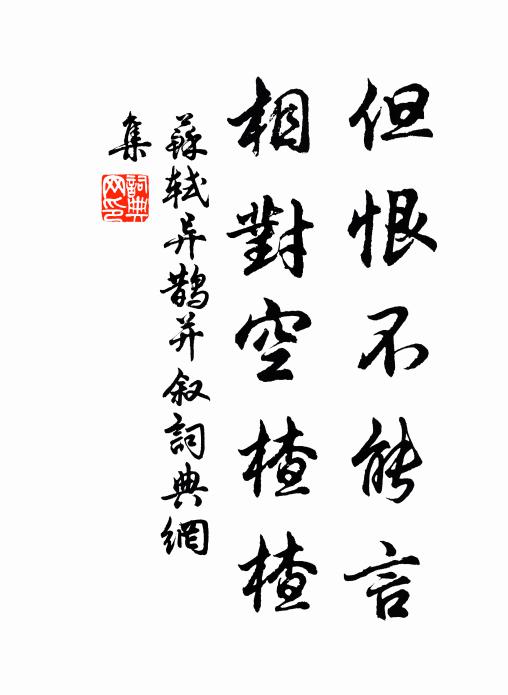 但恨不能言
相對空楂楂
蘇軾异鵲并叙詞典網
集
詞典
网印